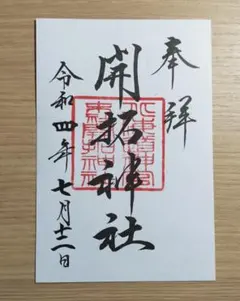 奉拝
開拓神社
令和四年七月十二日